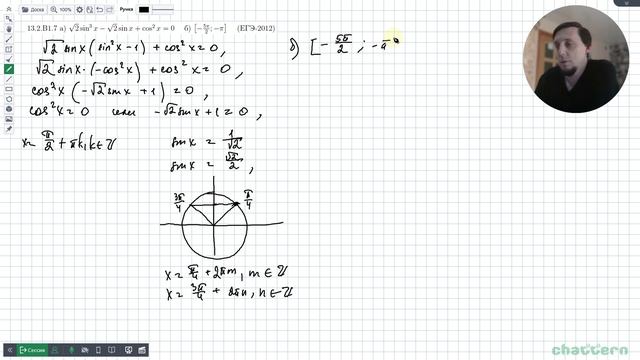 Доска
Ручка
13.2.B1.7 а) √2 sin³ x − √2 sin x + cos² x = 0   б) [−5π/2; −π]   (ЕГЭ-2012)
√2 sinx (sin²x − 1) + cos²x = 0,
√2 sinx · (−cos²x) + cos²x = 0,
cos²x (−√2 sinx + 1) = 0,
cos²x = 0 или −√2 sinx + 1 = 0,
x = π/2 + πk, k ∈ ℤ
sinx = 1/√2
sinx = √2/2,
3π/4   π/4
x = π/4 + 2πm, m ∈ ℤ
x = 3π/4 + 2πn, n ∈ ℤ
б) [−5π/2; −π
Сессия
chattern